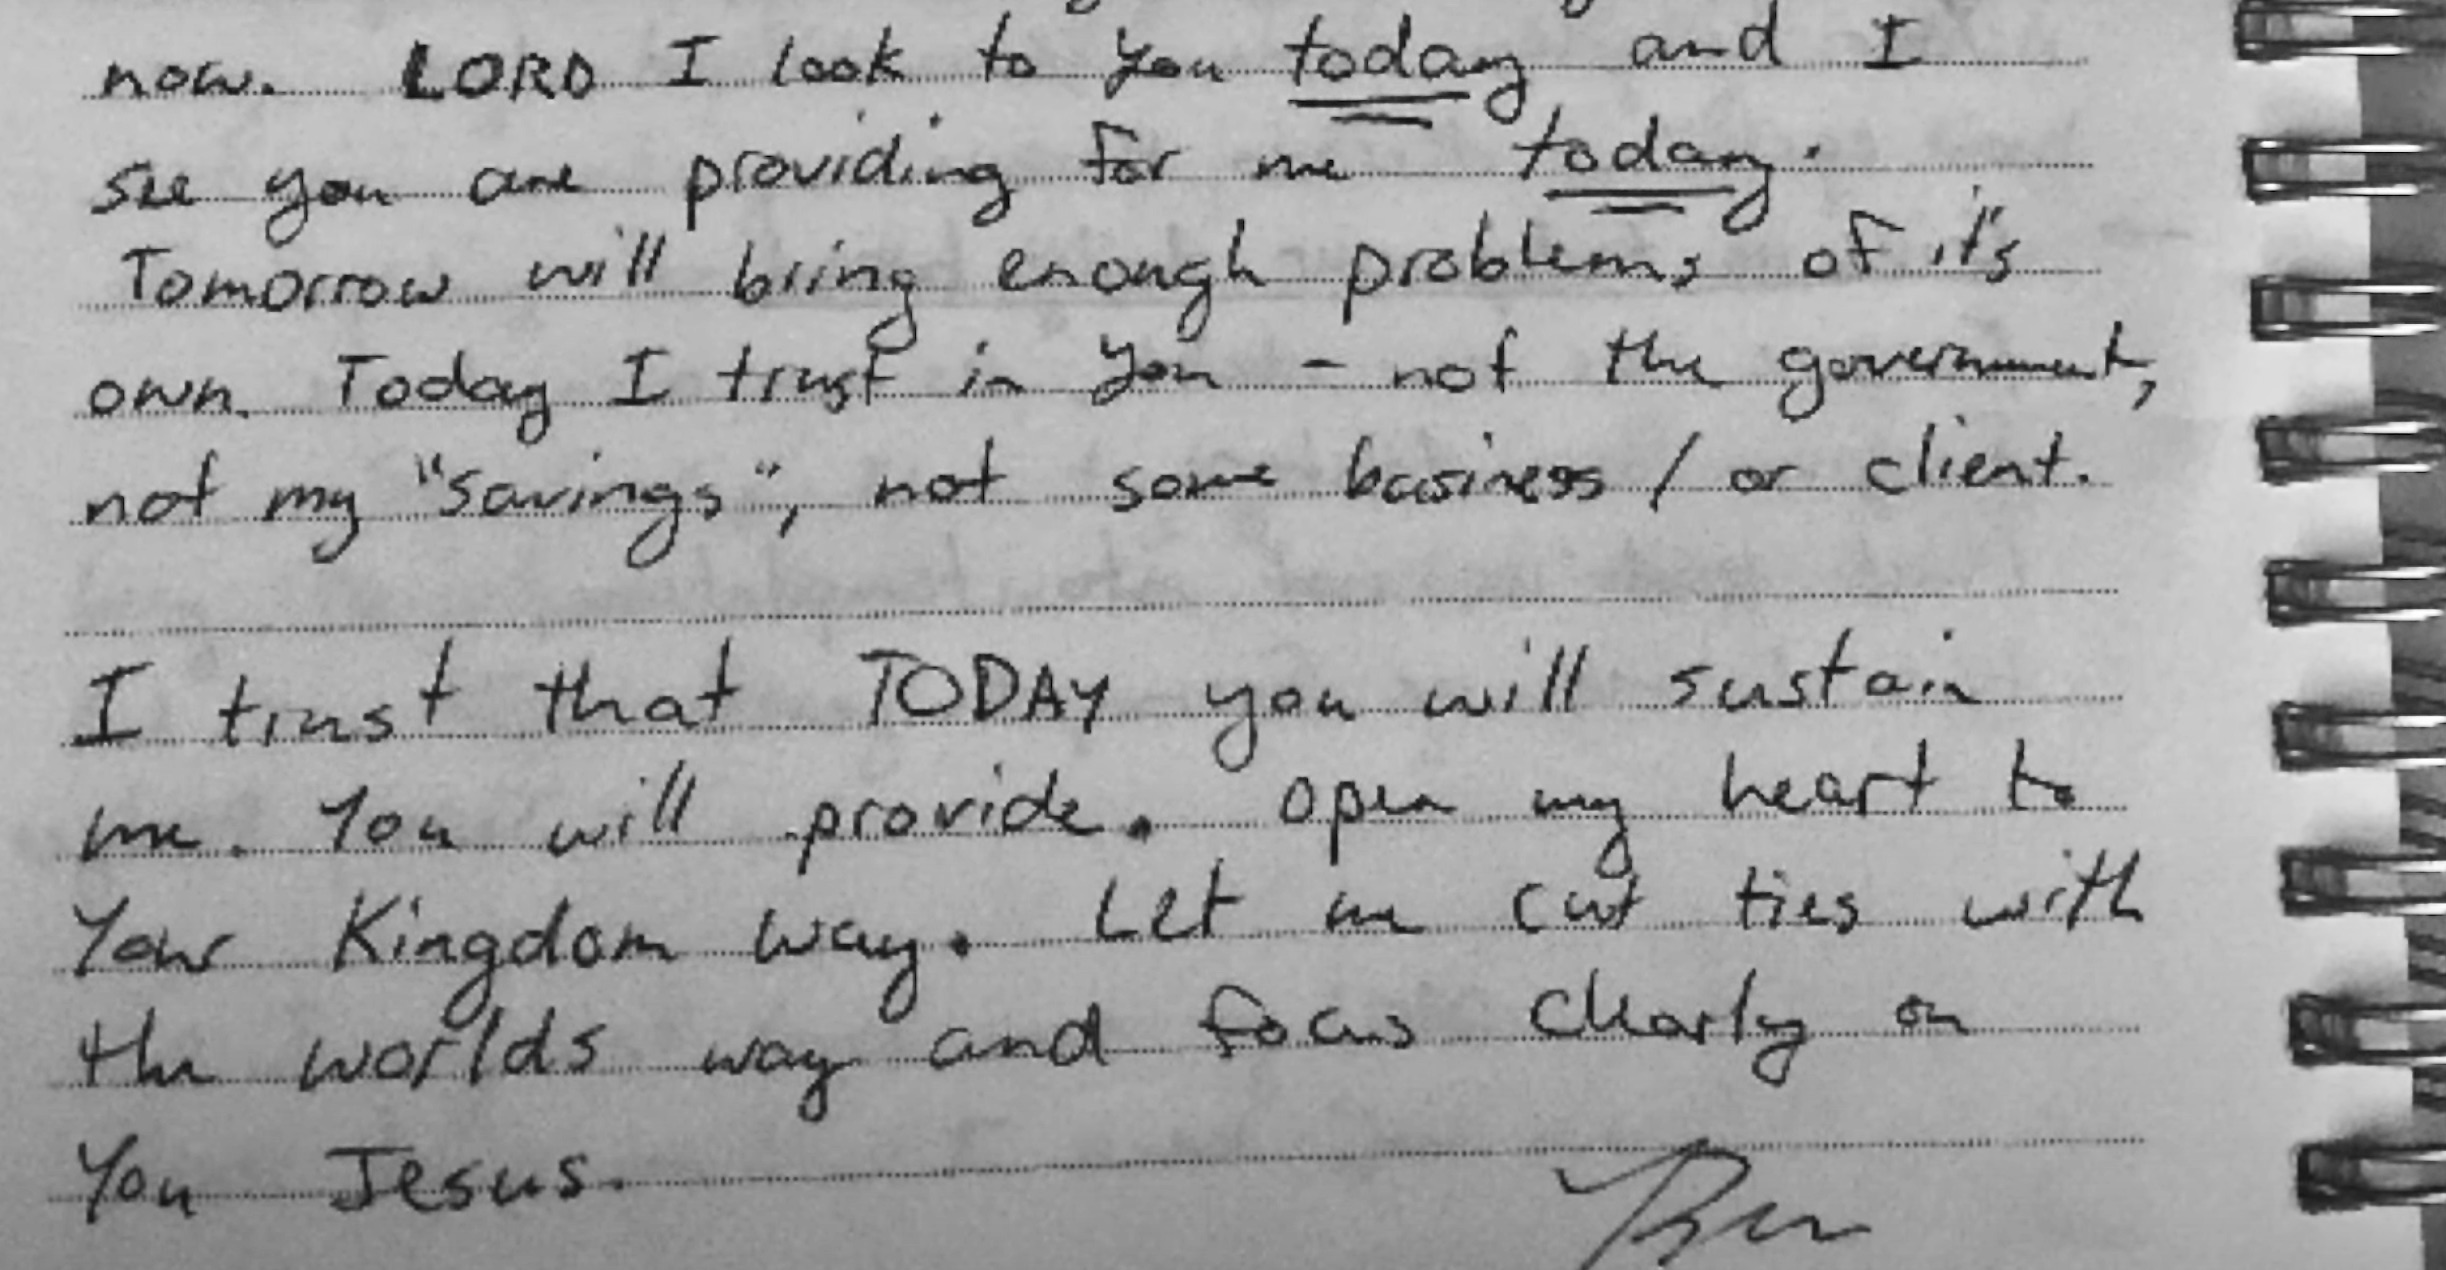 now. LORD I look to you today and I
see you are providing for me today.
Tomorrow will bring enough problems of it's
own. Today I trust in You - not the government,
not my "savings", not some business / or client.
I trust that TODAY you will sustain
me. You will provide. Open my heart to
Your Kingdom way. Let me cut ties with
the worlds way and focus clearly on
You Jesus.